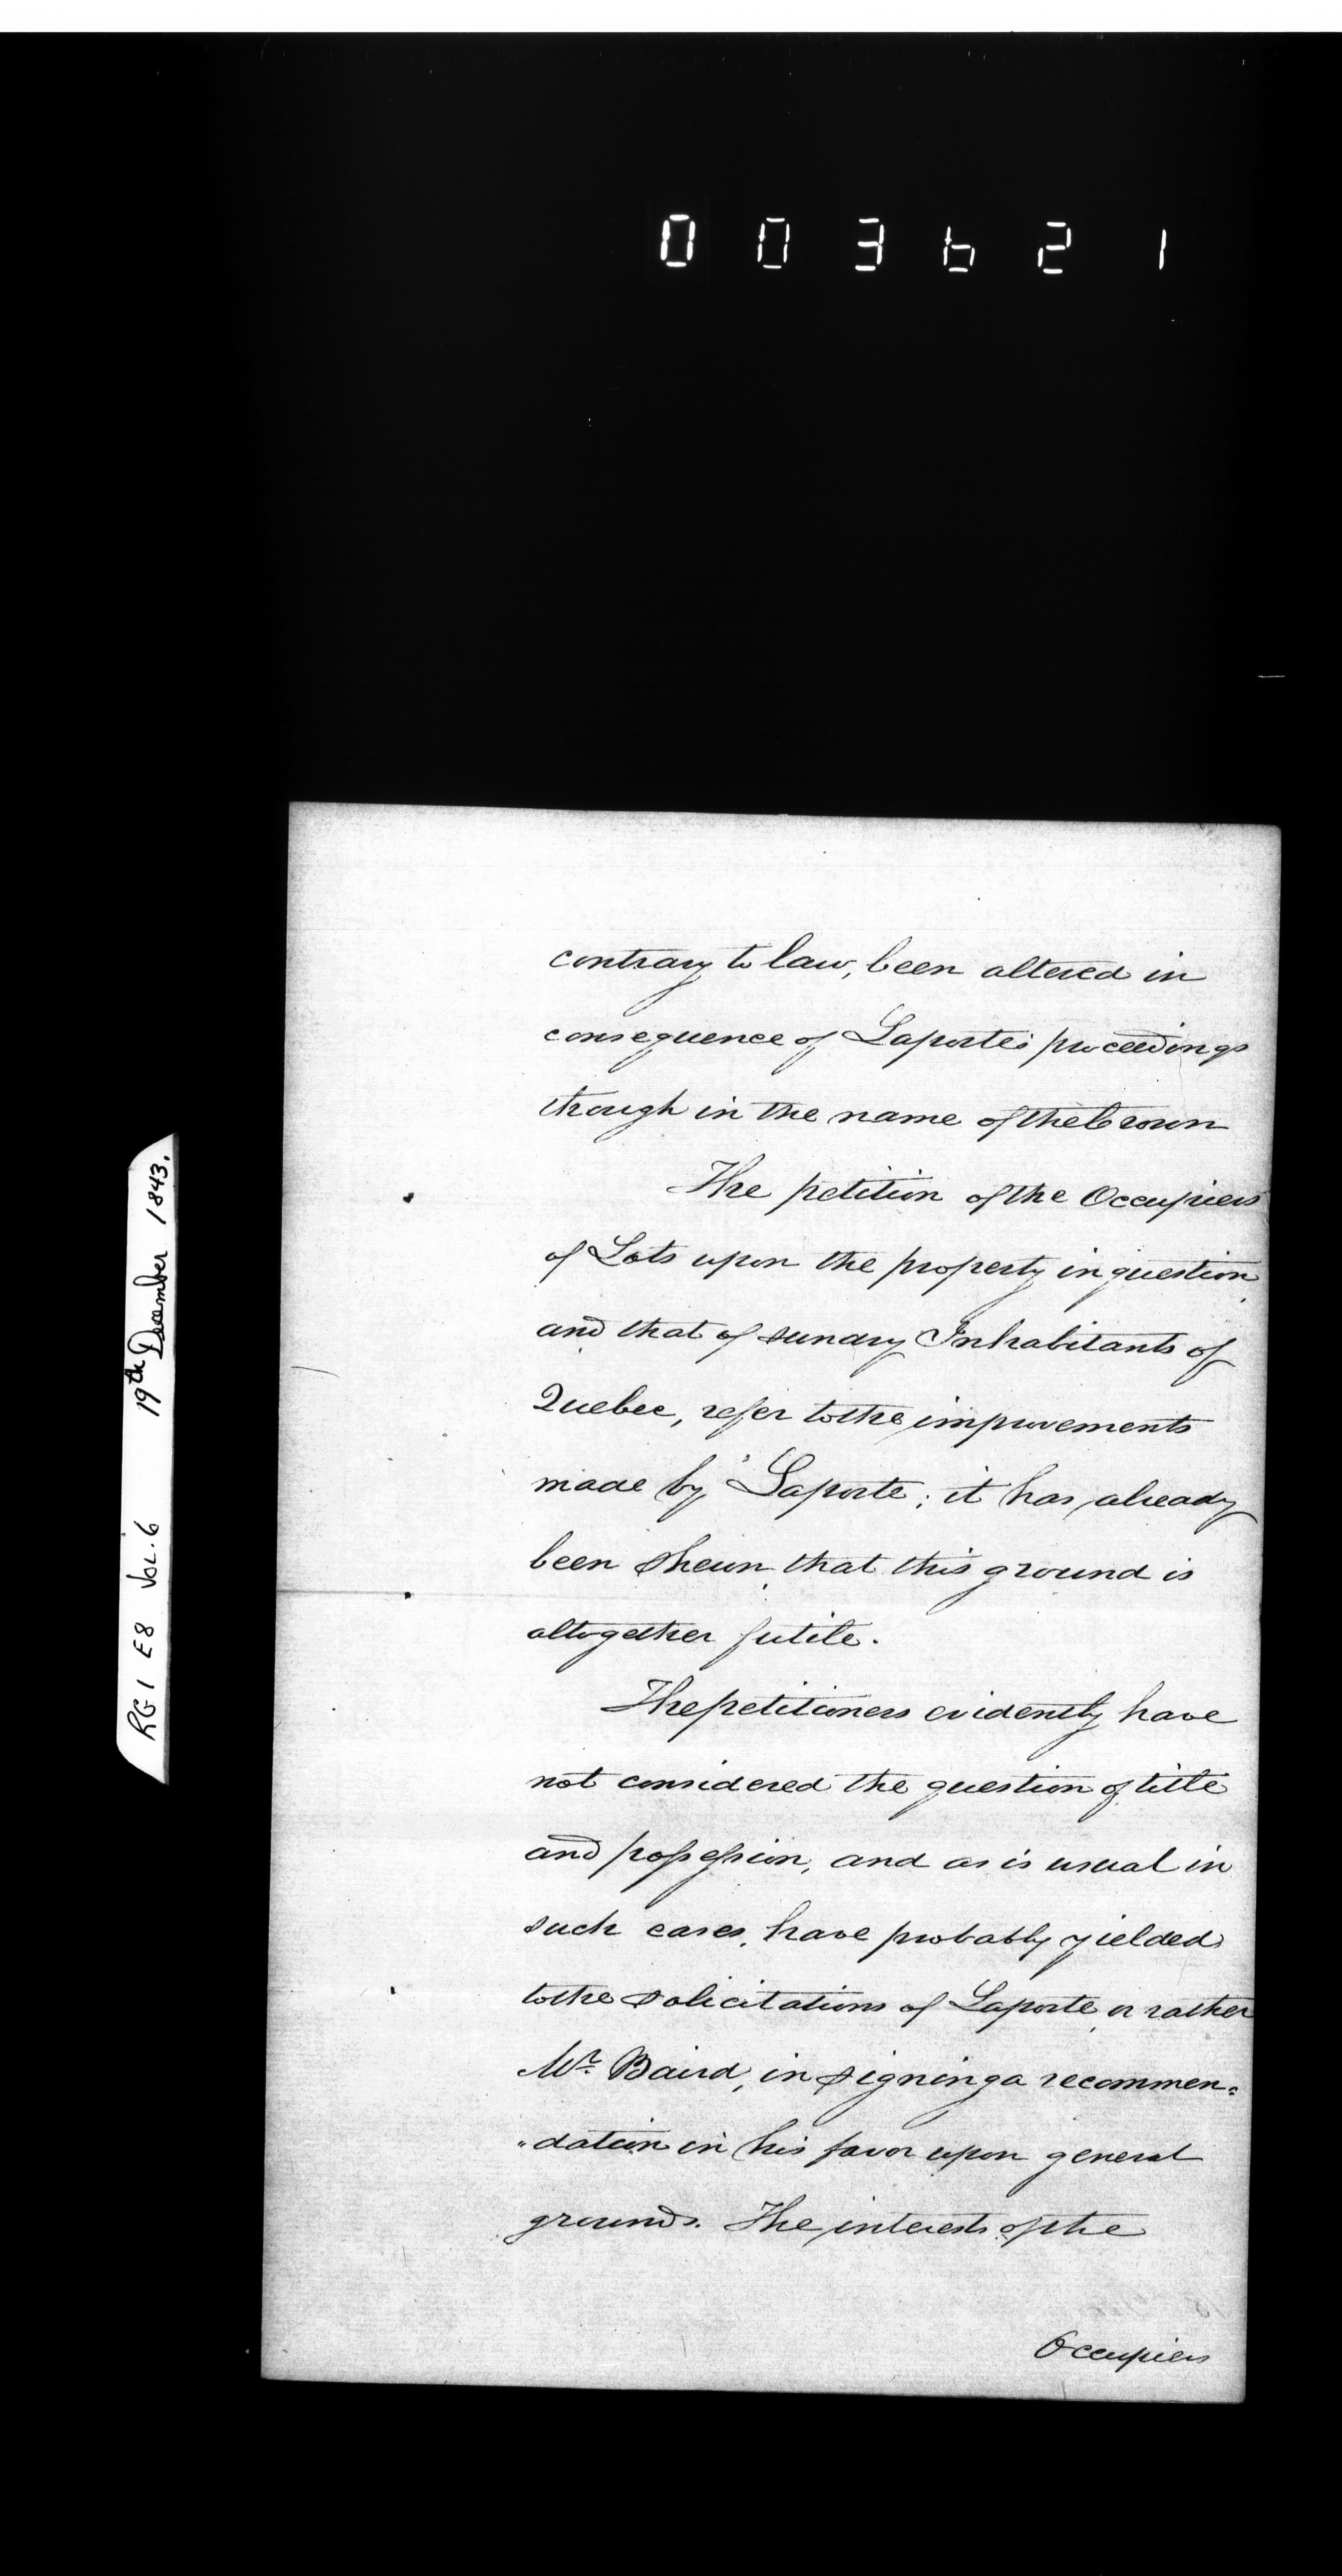 003621
RG1 E8 Vol. 6 19th December 1843.
contrary to law, been altered in
consequence of Laporte's proceedings
though in the name of the Crown
The petition of the Occupiers
of Lots upon the property in question
and that of sundry Inhabitants of
Quebec, refer to the improvements
made by Laporte; it has already
been shewn that this ground is
altogether futile.
The petitioners evidently have
not considered the question of title
and possession, and as is usual in
such cases, have probably yielded
to the solicitations of Laporte or rather
Mr. Baird, in signing a recommen=
"dation in his favor upon general
grounds. The interests of the
Occupiers